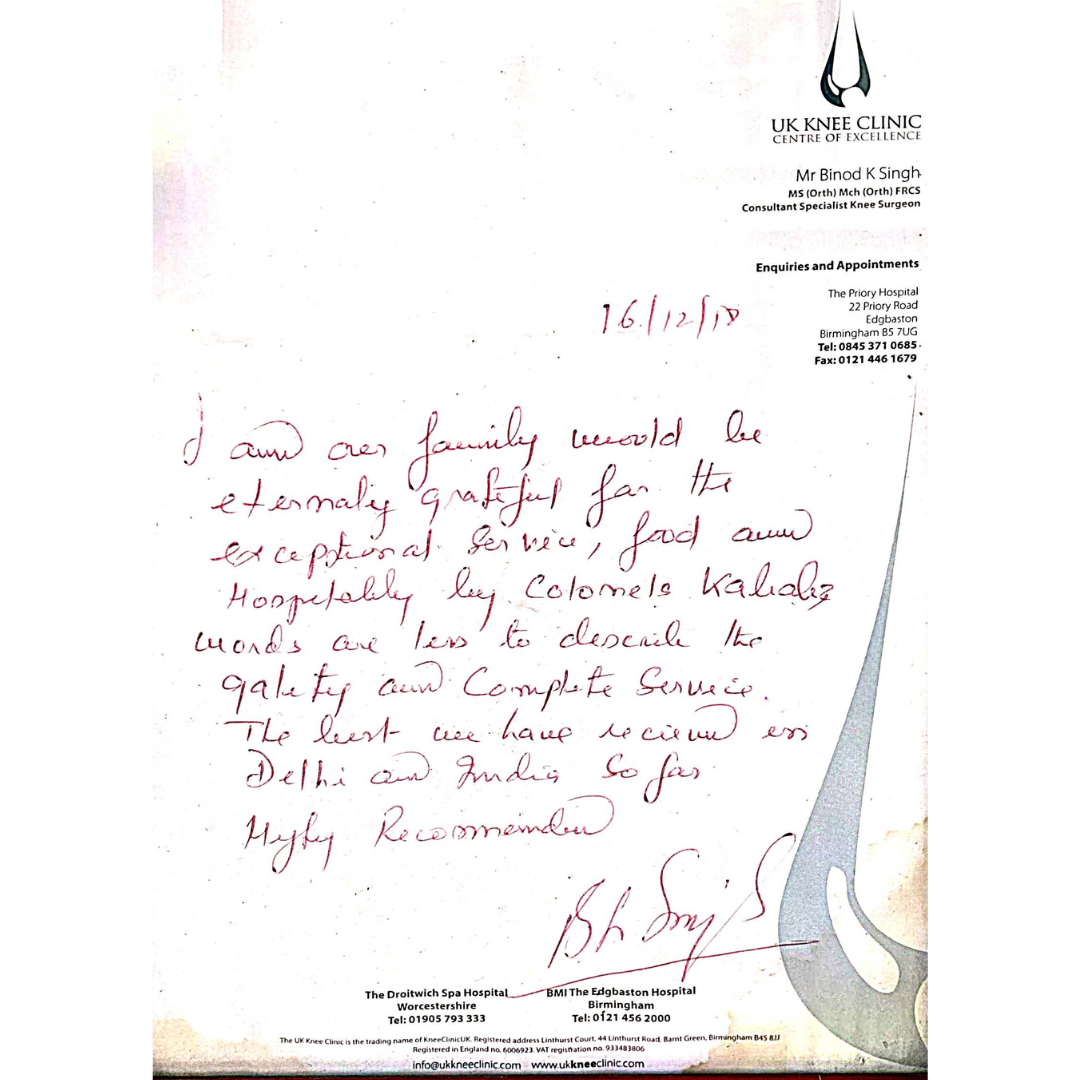 UK KNEE CLINIC
CENTRE OF EXCELLENCE
Mr Binod K Singh
MS (Orth) Mch (Orth) FRCS
Consultant Specialist Knee Surgeon
Enquiries and Appointments
The Priory Hospital
22 Priory Road
Edgbaston
Birmingham B5 7UG
Tel: 0845 371 0685
Fax: 0121 446 1679
16/12/18
I and our family would be
eternaly grateful for the
exceptional service, food and
Hospitality by Colonels Kababz
words are less to describe the
qality and Complete Service.
The best we have recieved in
Delhi and India so far
Highly Recommended
The Droitwich Spa Hospital
Worcestershire
Tel: 01905 793 333
BMI The Edgbaston Hospital
Birmingham
Tel: 0121 456 2000
The UK Knee Clinic is the trading name of KneeClinicUK. Registered address Linthurst Court, 44 Linthurst Road, Barnt Green, Birmingham B45 8JJ
Registered in England no. 6006923. VAT registration no. 933483806
info@ukkneeclinic.com www.ukkneeclinic.com